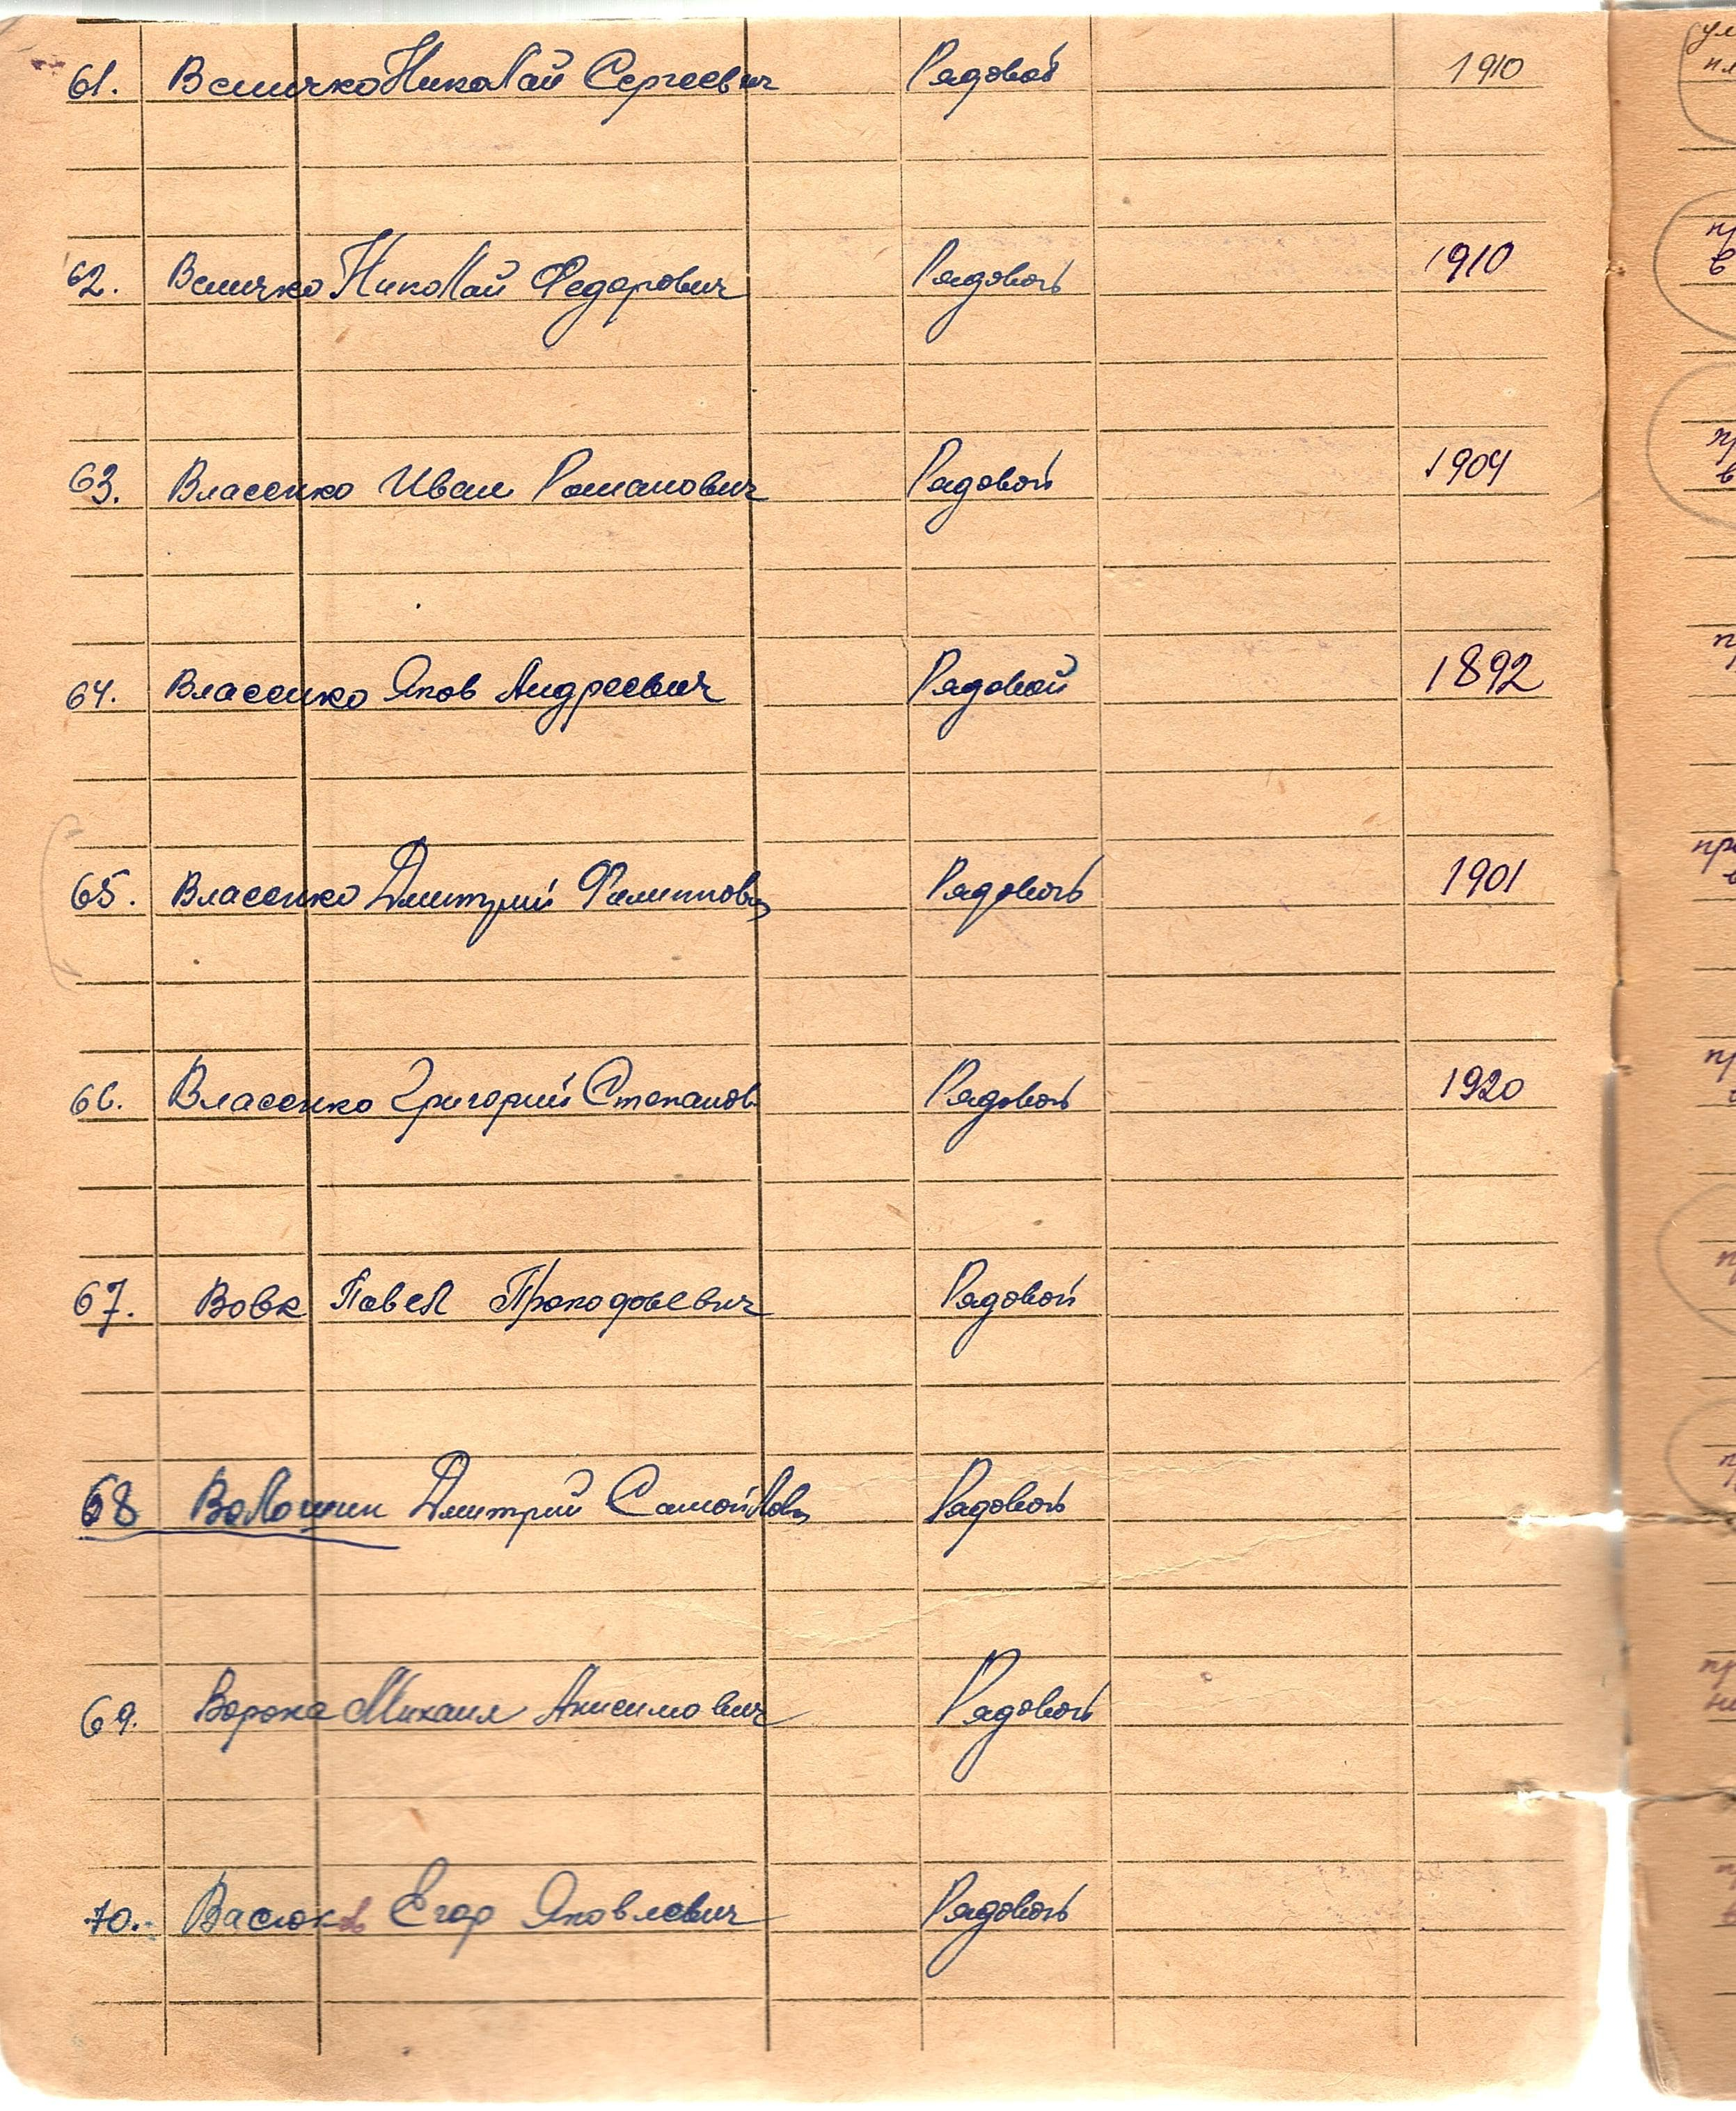 61. Величко Николай Сергеевич Рядовой 1910
62. Величко Николай Федорович Рядовой 1910
63. Власенко Иван Романович Рядовой 1904
64. Власенко Яков Андреевич Рядовой 1892
65. Власенко Дмитрий Филиппович Рядовой 1901
66. Власенко Григорий Степанов. Рядовой 1920
67. Вовк Павел Прокофьевич Рядовой
68 Волошин Дмитрий Самойлович Рядовой
69. Ворона Михаил Анисимович Рядовой
70. Васюков Егор Яковлевич Рядовой